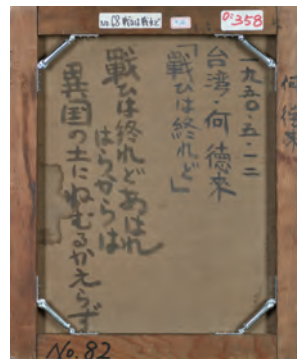 No.68 戦ひは終れど
0:358
一九五〇・五・一二
台湾・何德來
「戰ひは終れど」
戰ひは終れどあはれ
はらからは
異国の土にねむるかえらず
何德來
No.82